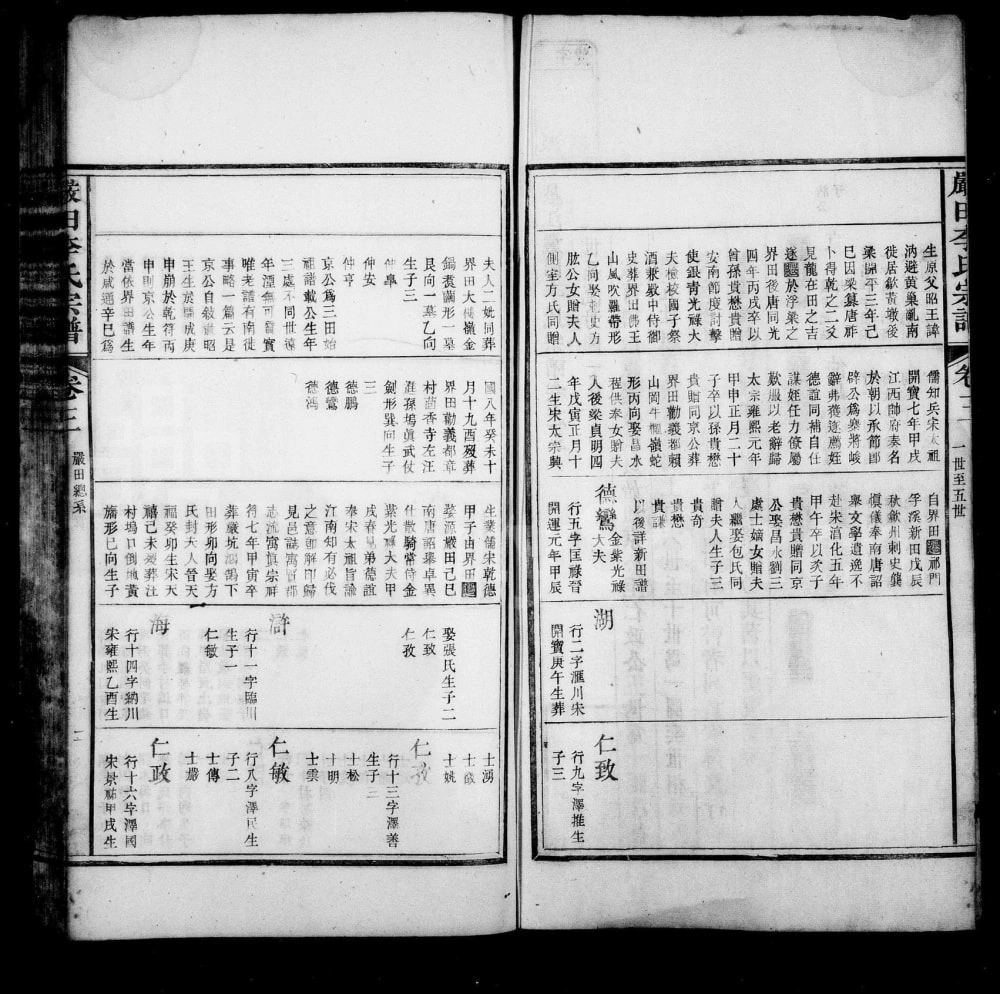 嚴田李氏宗譜
卷三
一世至五世
生原父昭王諱
汭避黃巢亂南
徙居歙黃墩後
梁開平三年己
巳因梁纂唐祚
卜得乾之二爻
見龍在田之吉
遂於浮梁之
界田後唐同光
四年丙戌卒以
曾孫貴懋貴贈
安南節度討擊
使銀青光祿大
夫檢校國子祭
酒兼數中侍御
史葬界田佛王
山風吹羅帶形
乙向娶刺史方
肱公女贈夫人
側室方氏同贈
儒知兵宋太祖
開寶七年甲戌
江西帥府奏名
於朝以承節郎
辟公為樂將峻
辭弗獲遊薦姪
德誼同補自仕
謀姪任力倏屬
歎服以老辭歸
太宗雍熙元年
甲申正月二十
子卒以孫貴懋
貴贈同京公葬
界田勸義都賴
山岡牛欄嶺蛇
形丙向娶昌水
程供奉女贈夫
人後梁貞明四
年戊寅正月十
二生宋太宗興
自界田遷祁門
孚溪新田戊辰
秋歙州刺史龔
慎儀奉南唐詔
舉文學遺逸不
赴宋滔化五年
甲午卒以次子
貴懋貴贈同京
公娶昌水劉三
處士嫡女贈夫
人繼娶包氏同
贈夫人生子三
貴奇
貴懋
貴謙
以後詳新田譜
德鸞
大夫
行五字匡祿晉
開運元年甲辰
湖
行二字滙川宋
開寶庚午生葬
仁致
行九字澤推生
子三
夫人二妣同葬
界田大樟嶺金
鍋煑繭形一墓
艮向一墓乙向
生子三
仲臯
仲安
仲亨
京公為三田始
祖諸譜載公生年
三處不同世遠
年湮無可質實
唯老譜有南徙
事略一篇云是
京公自敘離昭
王生於開成庚
申崩於乾符丙
申則京公生年
當依界田譜生
於咸通辛巳為
國八年癸未十
月十九酉歿葬
界田勸義都章
村茴香寺左汪
涯孫塢真武仗
劍形巽向生子
三
德鵬
德鸞
德鴻
生業儒宋乾德
甲子由界田遷
婺源嚴田己巳
南唐詔舉卓異
仕散騎常侍金
紫光祿大夫甲
戌春兄弟德誼
奉宋太祖旨諭
江南知有必伐
之意即解印歸
見邑誌寓賢郡
志流寓真宗祥
符七年甲寅卒
葬嚴坑涵潤下
田形卯向娶方
氏封夫人晉天
福癸卯生宋天
禧己未歿葬汪
村塢口倒地黃
旛形巳向生子
娶張氏生子二
仁致
仁孜
滸
行十一字臨川
生子一
仁敏
海
行十四字納川
宋雍熙乙酉生
士湧
士啟
士姚
仁孜
行十三字澤善
生子三
士松
士明
士雲
仁敏
行八字澤民生
子二
士傳
士巖
仁政
行十六字澤國
宋景祐甲戌生
嚴田李氏宗譜
卷三
嚴田總系
二